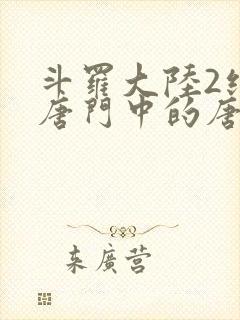 斗羅大陸2
唐門中的唐
来廣营